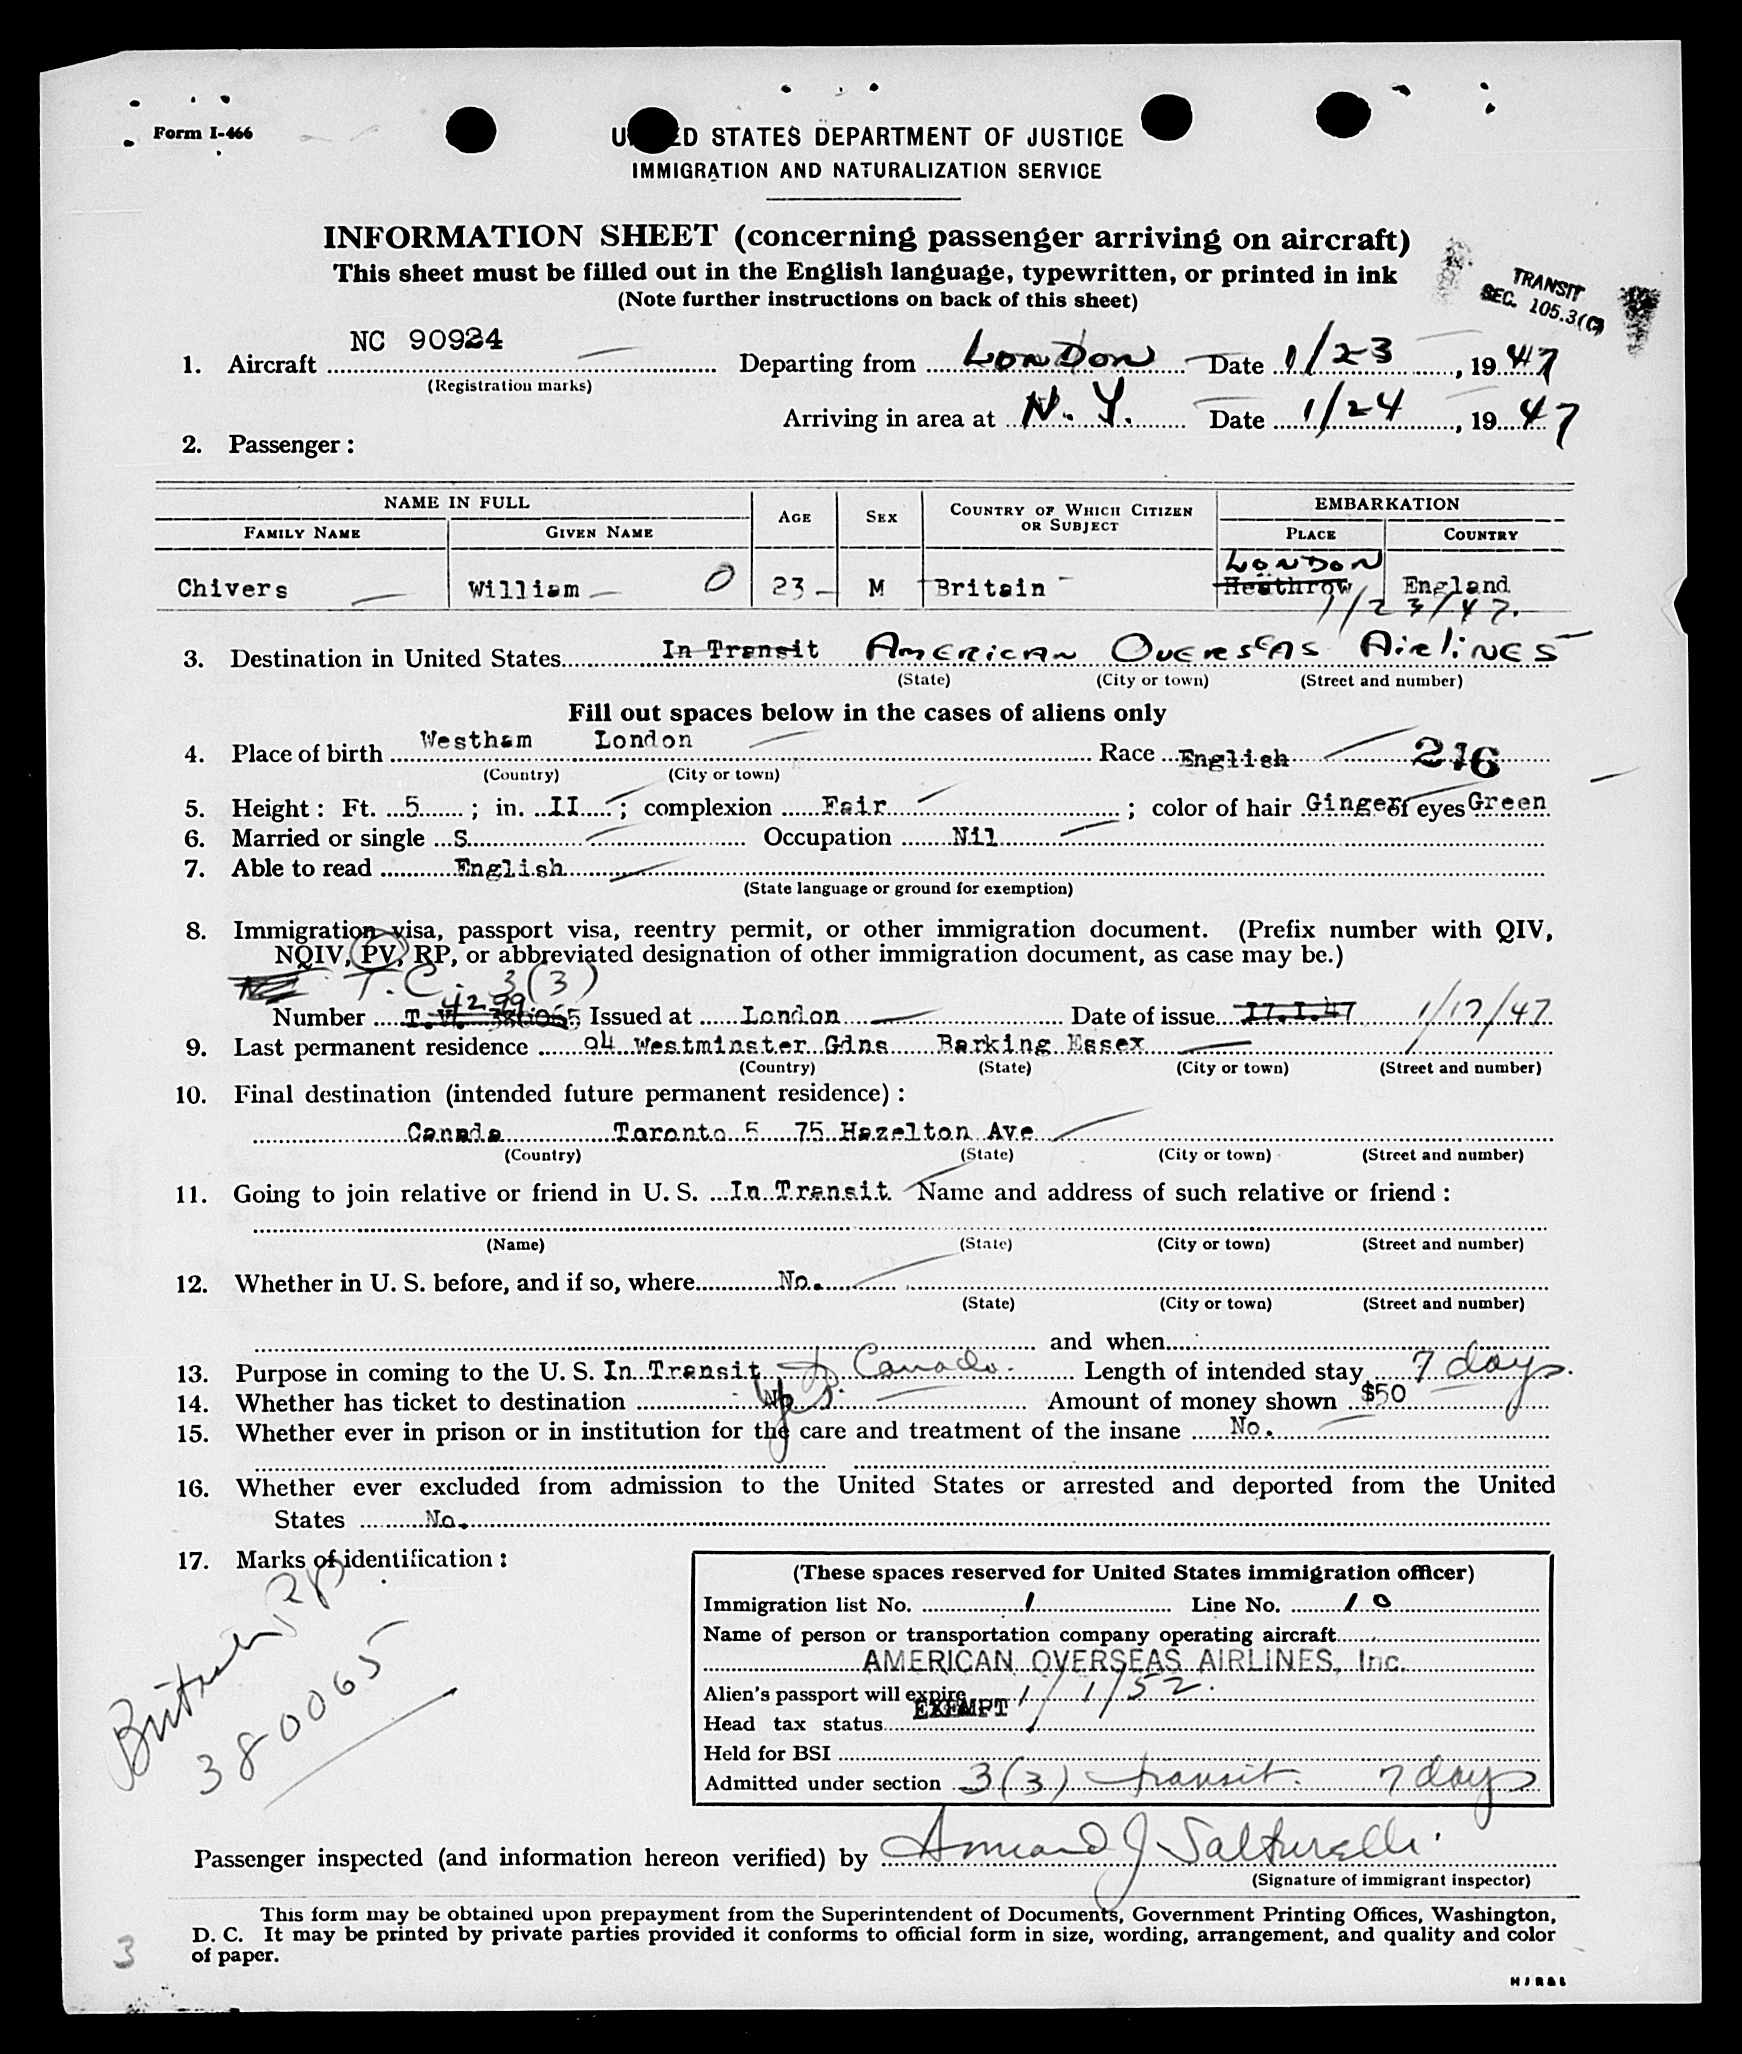 Form I-466
UNITED STATES DEPARTMENT OF JUSTICE
IMMIGRATION AND NATURALIZATION SERVICE
INFORMATION SHEET (concerning passenger arriving on aircraft)
This sheet must be filled out in the English language, typewritten, or printed in ink
(Note further instructions on back of this sheet)
TRANSIT
SEC. 105.3(C)
1. Aircraft NC 90924 Departing from LONDON Date 1/23, 1947
(Registration marks)
Arriving in area at N.Y. Date 1/24, 1947
2. Passenger:
NAME IN FULL AGE SEX COUNTRY OF WHICH CITIZEN OR SUBJECT EMBARKATION
FAMILY NAME GIVEN NAME PLACE COUNTRY
LONDON
Chivers William O 23 M Britain Heathrow England
1/23/47.
3. Destination in United States In Transit AMERICAN OVERSEAS AIRLINES
(State) (City or town) (Street and number)
Fill out spaces below in the cases of aliens only
4. Place of birth Westham London Race English 216
(Country) (City or town)
5. Height: Ft. 5; in. II; complexion Fair; color of hair Ginger of eyes Green
6. Married or single S Occupation Nil
7. Able to read English
(State language or ground for exemption)
8. Immigration visa, passport visa, reentry permit, or other immigration document. (Prefix number with QIV,
NQIV, PV, RP, or abbreviated designation of other immigration document, as case may be.)
T.C. 3(3)
4299
Number T.V. 380065 Issued at London Date of issue 17.1.47 1/17/47
9. Last permanent residence 94 Westminster Gdns Barking Essex
(Country) (State) (City or town) (Street and number)
10. Final destination (intended future permanent residence):
Canada Toronto 5 75 Hazelton Ave
(Country) (State) (City or town) (Street and number)
11. Going to join relative or friend in U. S. In Transit Name and address of such relative or friend:
(Name) (State) (City or town) (Street and number)
12. Whether in U. S. before, and if so, where No.
(State) (City or town) (Street and number)
and when
13. Purpose in coming to the U. S. In Transit to Canada. Length of intended stay 7 days.
14. Whether has ticket to destination No Yes Amount of money shown $50
15. Whether ever in prison or in institution for the care and treatment of the insane No.
16. Whether ever excluded from admission to the United States or arrested and deported from the United
States No.
17. Marks of identification:
British PP
380065
(These spaces reserved for United States immigration officer)
Immigration list No. 1 Line No. 10
Name of person or transportation company operating aircraft
AMERICAN OVERSEAS AIRLINES, Inc.
Alien's passport will expire 1/1/52.
Head tax status EXEMPT
Held for BSI
Admitted under section 3(3) transit. 7 days
Passenger inspected (and information hereon verified) by Armand J Salturelli
(Signature of immigrant inspector)
This form may be obtained upon prepayment from the Superintendent of Documents, Government Printing Offices, Washington,
D. C. It may be printed by private parties provided it conforms to official form in size, wording, arrangement, and quality and color
of paper.
3